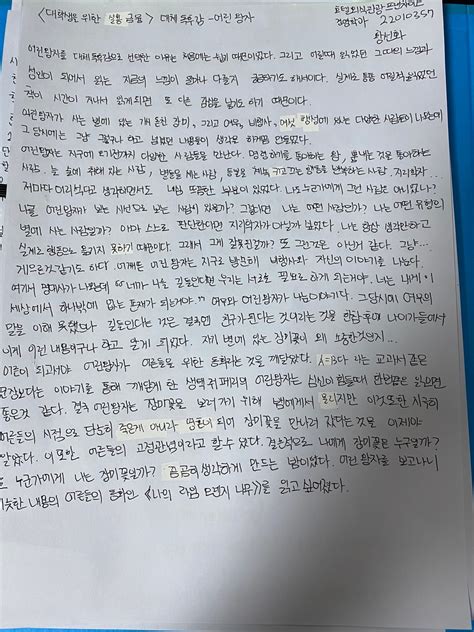 <대학생을 위한 실용 금융> 대체 독후감 - 어린 왕자
호텔외식관광
경영학과 22010357
황선화
어린왕자를 대체 독후감으로 선택한 이유는 처음에는 때문이었다. 그리고 어릴때 읽었었던 그때의 느낌과
성인이 되어서 읽는 지금의 느낌이 얼마나 다를지 궁금하기도 해서이다. 실제로 어릴적 읽었던
책이 시간이 지나서 읽게되면 또 다른 감명을 남기도 하기 때문이다.
어린왕자가 사는 별에 있는 장미, 그리고 여우, 비행사, 여섯 행성에 있는 다양한 사람들이 나오는데
그 당시에는 그냥 하고 넘겼던 내용들이 생각을 하게끔 만들었다.
어린왕자는 지구에 오기전까지 다양한 사람들을 만난다. 명령하기를 좋아하는 왕, 좋아하는
사람, 술 술에 취해 있는 사람, 별들을 세는 사람, 등불을 켜고 끄는 행동을 반복하는 사람, 지리학자.
저마다 어리석다고 생각하면서도 내심 뜨끔한 부분이 있었다. 나도 누군가에게 그런 사람은 아니었나?
나를 어린왕자가 보는 시선으로 보는 사람이 있을까? 그렇다면 나는 어떤 사람인가? 나는 어떤 유형의
별에 사는 사람일까? 아마 스스로 판단한다면 지리학자가 아닐까 싶었다. 나는 항상 생각만하고
실제로 행동으로 옮기지 못하기 때문이다. 그래서 그게 잘못된걸까? 또 그런것은 아닌거 같다. 그냥...
게으른것 같기도 하다. 어쨌든 어린 왕자는 지구로 비행사와 자신의 이야기를 나눈다.
여기서 명대사가 나왔는데 "네가 나를 길들인다면 우리는 서로를 필요로 하게 되는거야. 너는 내게 이
세상에서 하나밖에 없는 존재가 되는거야" 여우와 어린왕자가 나눈이야기다. 그당시에 여우의
말을 이해 못했으나 길들인다는 것은 결국엔 친구가된다는 것이라는 것을 한참후에 나이가들어서
이게 이런 내용이구나 하고 알게 되었다. 자기 별에 있는 장미꽃이 왜 소중한것인지..
어른이 되고서야 어린왕자가 어른들을 위한 동화라는 것을 깨달았다. A=B다 라는 교과서 같은
문장보다는 이야기를 통해 깨닫게 한 생텍쥐페리의 어린왕자는 심신이 힘들때 한번쯤 읽으면
좋은것 같다. 결국 어린왕자는 장미꽃을 보러가기 위해 뱀에게서 물리지만 이것또한 지극히
어른들의 시점으로 단순히 죽은게 아니라 영혼이 되어 장미꽃을 만나러 갔다는 것을 이제야
알았다. 이 또한 어른들의 고정관념이라고 할수 있다. 결론적으로 나에게 장미꽃은 누구일까?
또 누군가에게 나는 장미꽃일까? 곰곰히 생각하게 만드는 밤이었다. 어린 왕자를 보고나니
비슷한 내용의 어른들의 동화인 《나의 라임 오렌지 나무》를 읽고 싶어졌다.